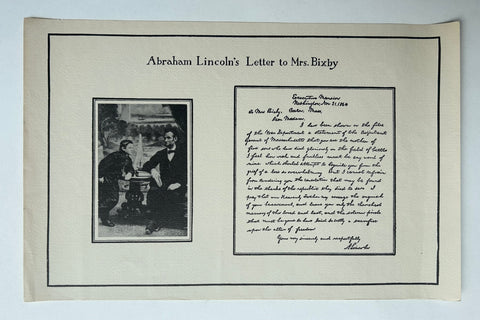 Abraham Lincoln's Letter to Mrs. Bixby
Executive Mansion
Washington, Nov. 21, 1864
To Mrs Bixby, Boston, Mass
Dear Madam.
I have been shown in the files
of the War Department a statement of the Adjutant
General of Massachusetts that you are the mother of
five sons who have died gloriously on the field of battle
I feel how weak and fruitless must be any word of
mine which should attempt to beguile you from the
grief of a loss so overwhelming. But I cannot refrain
from tendering you the consolation that may be found
in the thanks of the republic they died to save. I
pray that our Heavenly Father may assuage the anguish
of your bereavement, and leave you only the cherished
memory of the loved and lost, and the solemn pride
that must be yours to have laid so costly a sacrifice
upon the altar of freedom
Yours very sincerely and respectfully
A Lincoln